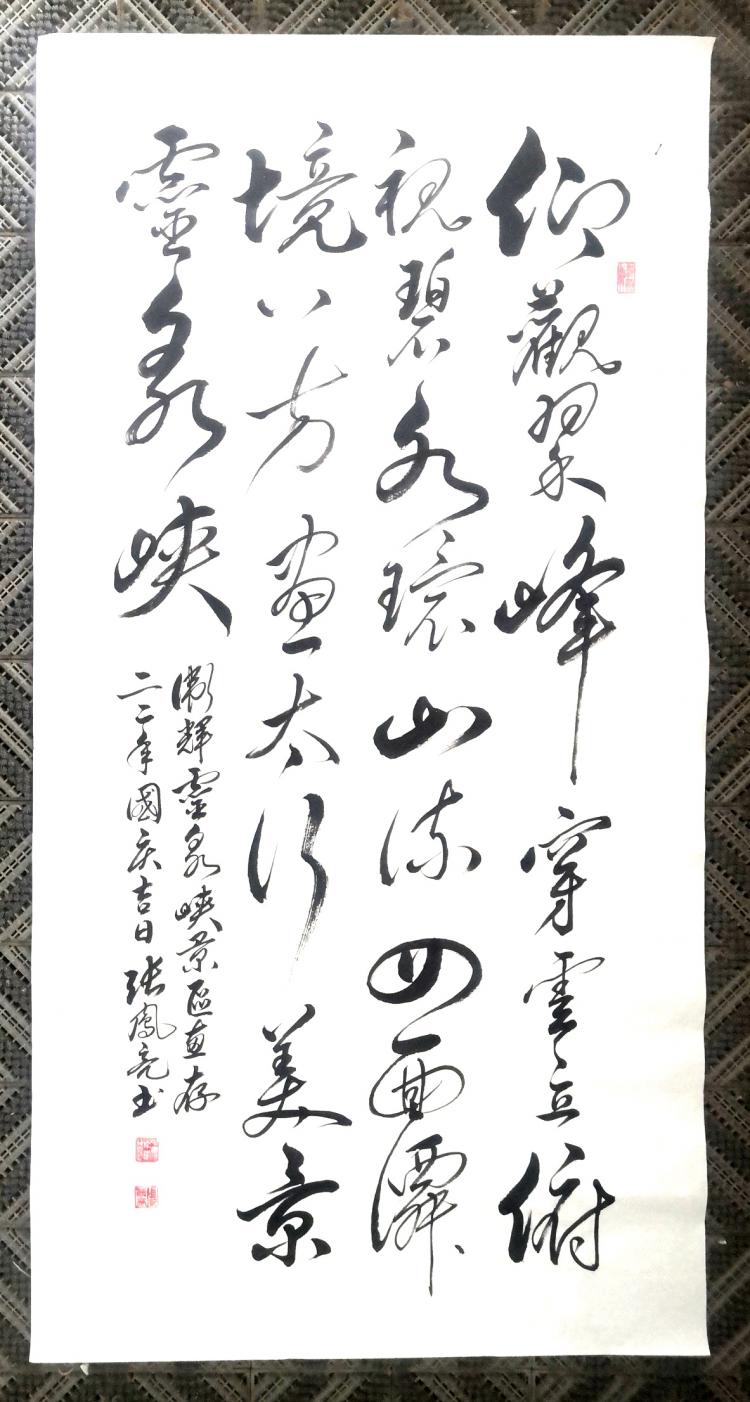 仰觀翠峰穿雲立俯
視碧水環山流四面僊
境八方畫太行美景
靈泉峽
衛輝靈泉峽景區惠存
二二年國庆吉日张鳳亮书